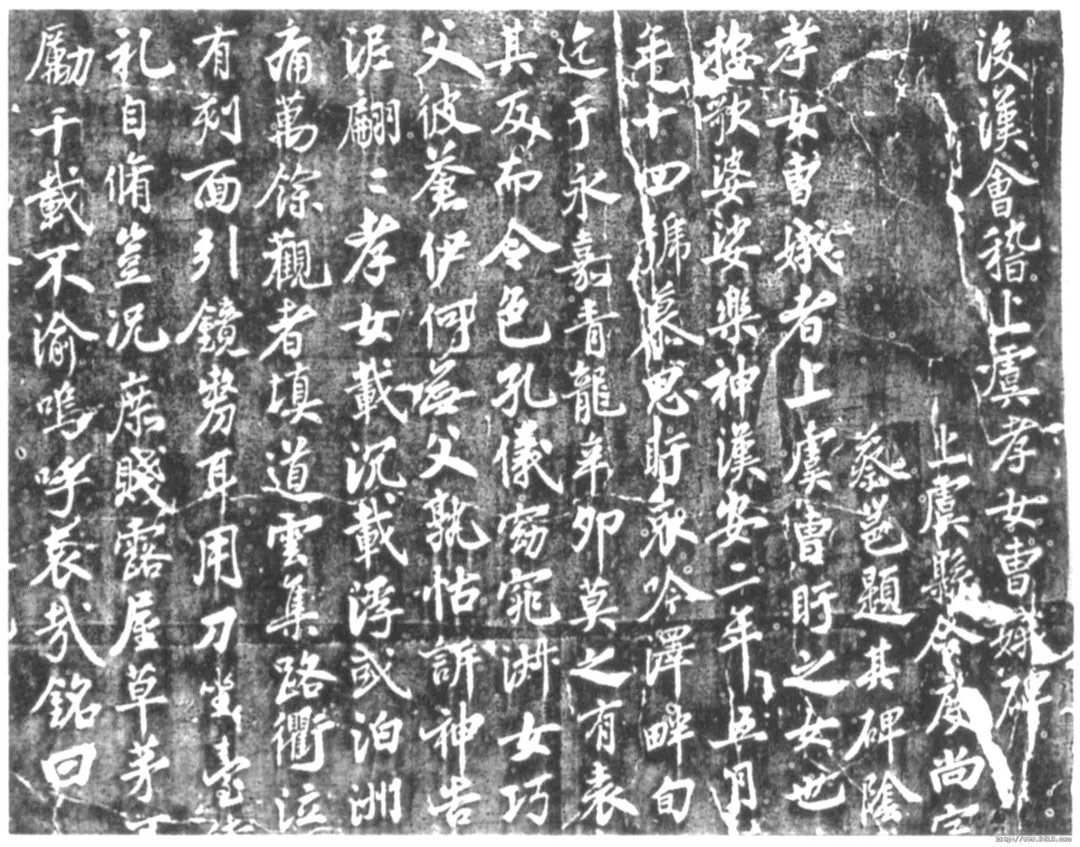 後漢會稽上虞孝女曹娥碑
上虞縣令度尚字
蔡邕題其碑陰
孝女曹娥者上虞曹盱之女也
按歌婆娑樂神漢安二年五月
年十四號慕思盱哀吟澤畔旬
迄于永嘉青龍辛卯莫之有表
其反而令色孔儀窈窕淑女巧
父彼蒼伊何無父孰怙訴神告
泥翩〻孝女載沉載浮或泊洲
痛萬餘觀者填道雲集路衢泣
有刻面引鏡剺耳用刀坐臺待
礼自脩豈況庶賤露屋草茅不
勵千載不渝嗚呼哀哉銘曰